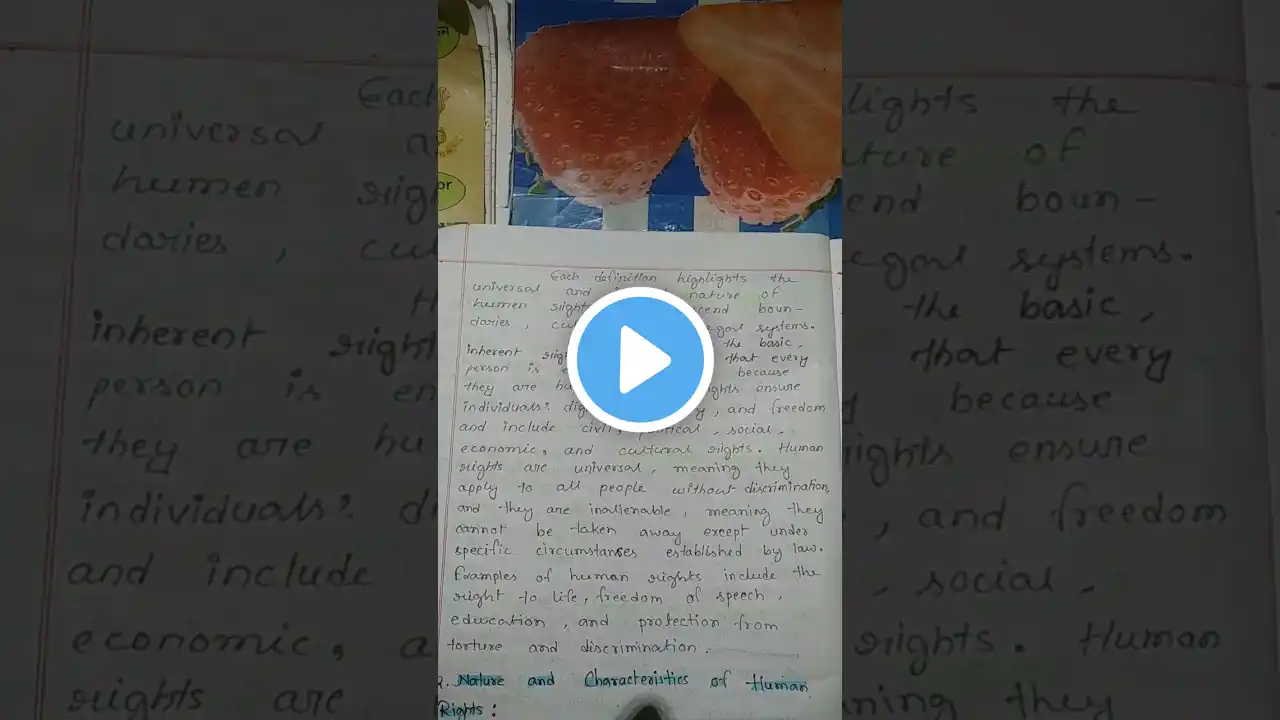 Each definition highlights the
universal and nature of
human rights boun-
daries, systems.
the basic,
inherent that every
person is because
they are ensure
individuals' and freedom
and include civil, political, social,
economic, and cultural rights. Human
rights are universal, meaning they
apply to all people without discrimination,
and they are inalienable, meaning they
cannot be taken away except under
specific circumstances established by law.
Examples of human rights include the
right to life, freedom of speech,
education, and protection from
torture and discrimination.
2. Nature and Characteristics of Human
Rights: